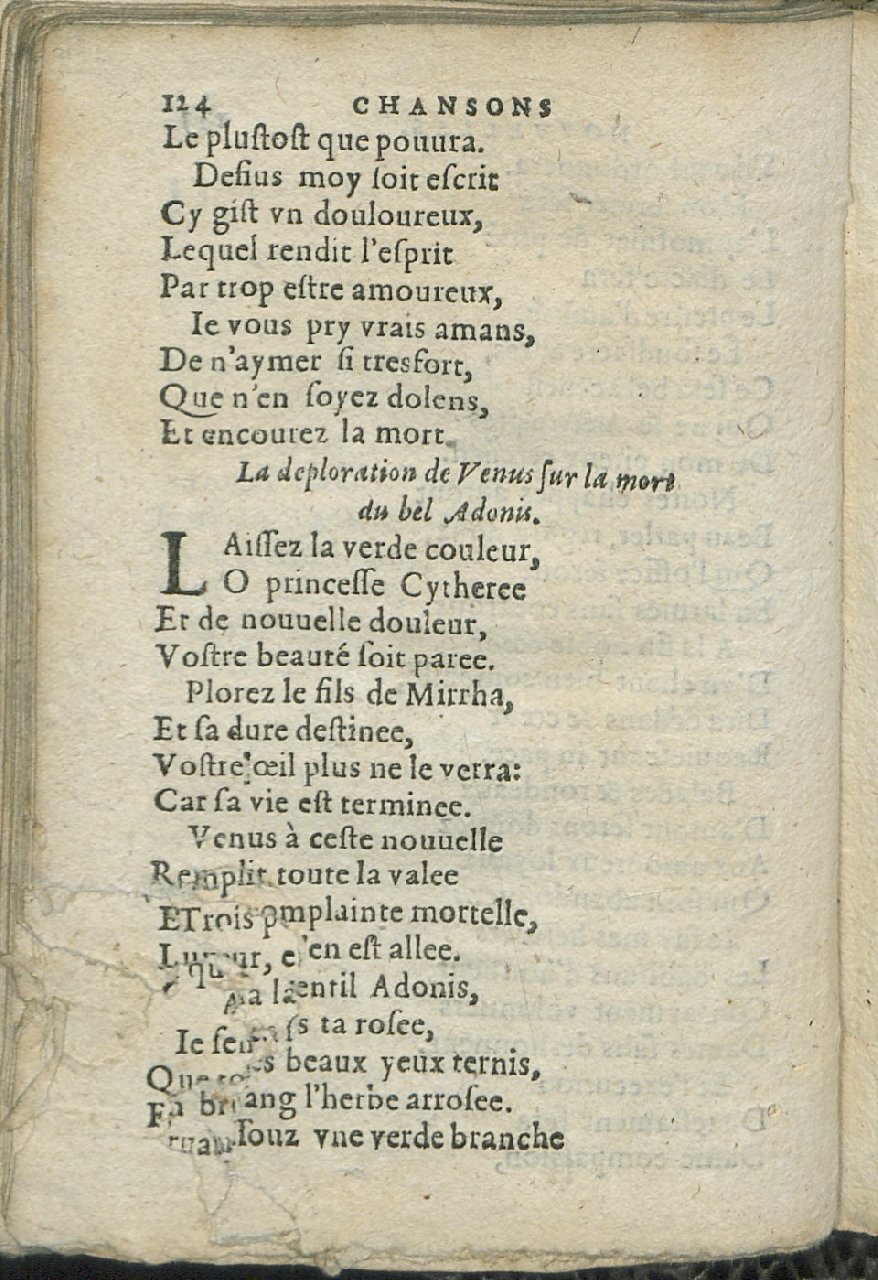 124 CHANSONS
Le pluſtoſt que pouura.
Deſius moy ſoit eſcrit
Cy giſt vn douloureux,
Lequel rendit l'eſprit
Par trop eſtre amoureux,
Ie vous pry vrais amans,
De n'aymer ſi tresfort,
Que n'en ſoyez dolens,
Et encourez la mort.
La deploration de Venus ſur la mort
du bel Adonis.
LAiſſez la verde couleur,
O princeſſe Cytheree
Et de nouuelle douleur,
Voſtre beauté ſoit paree.
Plorez le fils de Mirrha,
Et ſa dure deſtinee,
Voſtre œil plus ne le verra:
Car ſa vie eſt terminee.
Venus à ceſte nouuelle
Remplit toute la valee
omplainte mortelle,
'en eſt allee.
entil Adonis,
s ta roſee,
Ie
beaux yeux ternis,
ang l'herbe arroſee.
ſouz vne verde branche